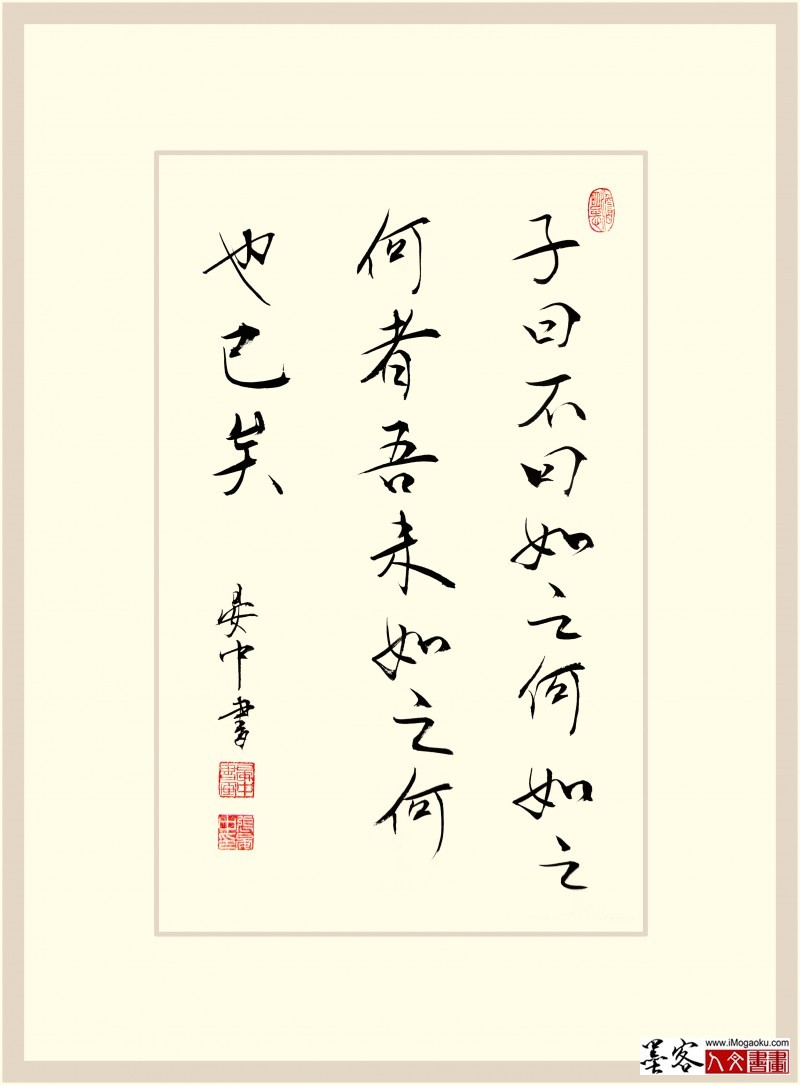 子曰不曰如之何如之
何者吾未如之何
也已矣
晏中書
墨客
www.iMogaoku.com
人文書畫